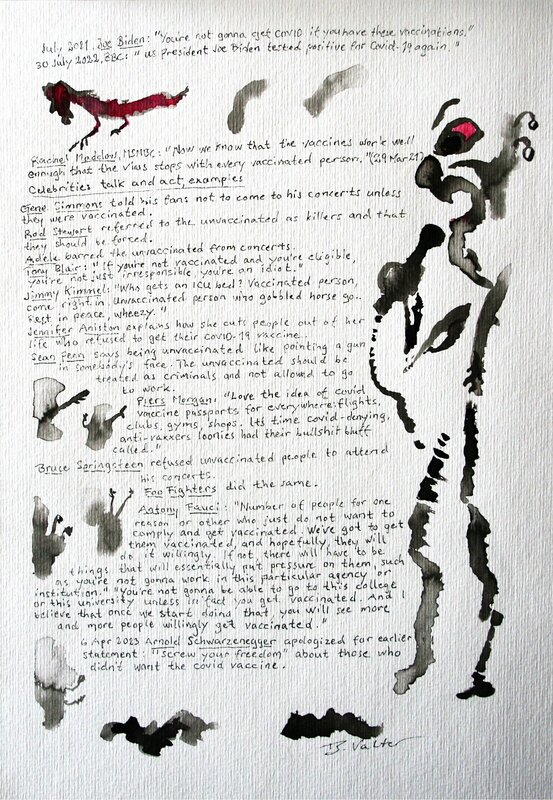 July 2021, Joe Biden: "You're not gonna get COVID if you have these vaccinations."
30 July 2022, BBC: "US President Joe Biden tested positive for Covid-19 again."
Rachel Maddow, MSNBC: "Now we know that the vaccines work well
enough that the virus stops with every vaccinated person." (29 Mar 21)
Celebrities talk and act, examples
Gene Simmons told his fans not to come to his concerts unless
they were vaccinated.
Rod Stewart referred to the unvaccinated as killers and that
they should be forced.
Adele barred the unvaccinated from concerts.
Tony Blair: "If you're not vaccinated and you're eligible,
you're not just irresponsible, you're an idiot."
Jimmy Kimmel: "Who gets an ICU bed? Vaccinated person,
come right in. Unvaccinated person who gobbled horse go..
Rest in peace, wheezy."
Jennifer Aniston explains how she cuts people out of her
life who refused to get their covid-19 vaccine.
Sean Penn says being unvaccinated like pointing a gun
in somebody's face. The unvaccinated should be
treated as criminals and not allowed to go
to work.
Piers Morgan: "Love the idea of covid
vaccine passports for everywhere: flights,
clubs, gyms, shops. Its time covid-denying,
anti-vaxxers loonies had their bullshit bluff
called."
Bruce Springsteen refused unvaccinated people to attend
his concerts.
Foo Fighters did the same.
Antony Fauci: "Number of people for one
reason or other who just do not want to
comply and get vaccinated. We've got to get
them vaccinated, and hopefully, they will
do it willingly. If not, there will have to be
things that will essentially put pressure on them, such
as you're not gonna work in this particular agency or
institution." "You're not gonna be able to go to this college
or this university unless in fact you get vaccinated. And I
believe that once we start doing that, you will see more
and more people willingly get vaccinated."
6 Apr 2023 Arnold Schwarzenegger apologized for earlier
statement: "Screw your freedom" about those who
didn't want the covid vaccine.
B. Valter